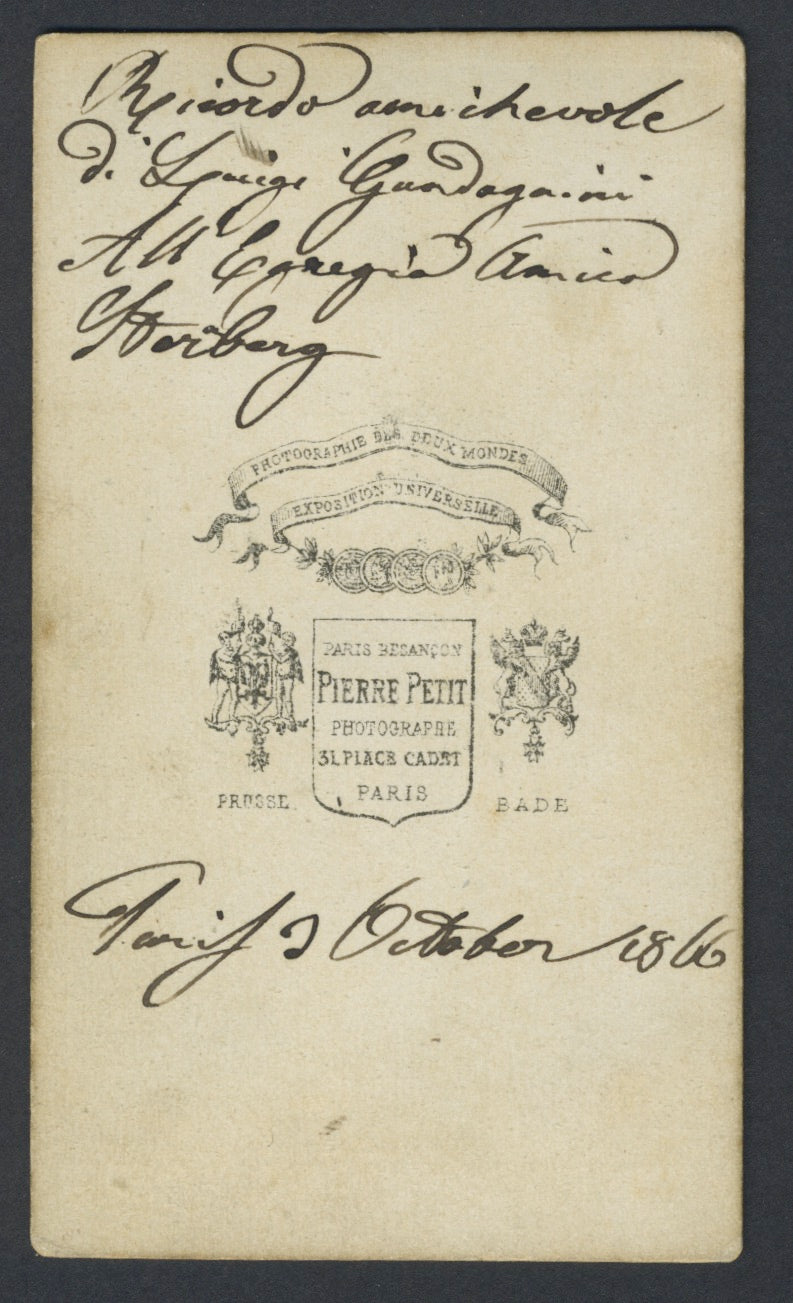 Ricordo amichevole
di Luigi Guadagnini
All' Egregio Amico
Sterberg
PHOTOGRAPHIE DES DEUX MONDES
EXPOSITION UNIVERSELLE
PARIS BESANÇON
PIERRE PETIT
PHOTOGRAPHE
31, PLACE CADET
PARIS
PRUSSE
BADE
Paris 3 October 1866